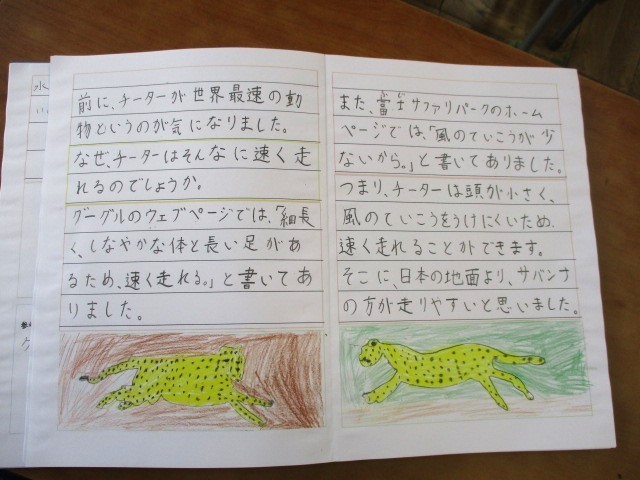 水
参考
前に、チーターが世界最速の動
物というのが気になりました。
なぜ、チーターはそんなに速く走
れるのでしょうか。
グーグルのウェブページでは、「細長
く、しなやかな体と長い足があ
るため、速く走れる。」と書いてあ
りました。
また、富士サファリパークのホーム
ページでは、「風のていこうが少
ないから。」と書いてありました。
つまり、チーターは頭が小さく、
風のていこうをうけにくいため、
速く走れることができます。
そこに、日本の地面より、サバンナ
の方が走りやすいと思いました。